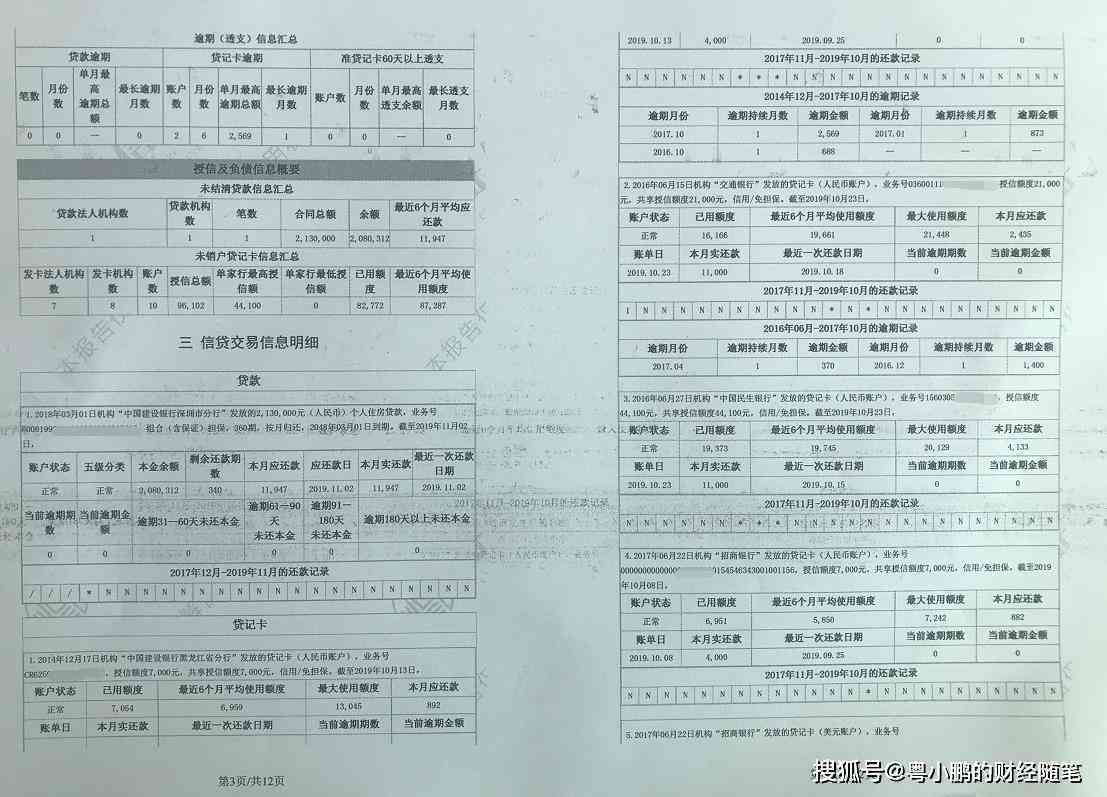 逾期（透支）信息汇总
贷款逾期 贷记卡逾期 准贷记卡60天以上透支
笔数 月份数 单月最高逾期总额 最长逾期月数 账户数 月份数 单月最高逾期总额 最长逾期月数 账户数 月份数 单月最高透支余额 最长透支月数
0 0 — 0 2 6 2,569 1 0 0 — 0
授信及负债信息概要
未结清贷款信息汇总
贷款法人机构数 贷款机构数 笔数 合同总额 余额 最近6个月平均应还款
1 1 1 2,130,000 2,080,312 11,947
未销户贷记卡信息汇总
发卡法人机构数 发卡机构数 账户数 授信总额 单家行最高授信额 单家行最低授信额 已用额度 最近6个月平均使用额度
7 8 10 96,102 44,100 0 82,772 87,287
三 信贷交易信息明细
贷款
1.2018年03月01日机构“中国建设银行深圳市分行”发放的2,130,000元（人民币）个人住房贷款，业务号
组合（含保证）担保，360期，按月归还，2048年03月01日到期。截至2019年11月02
日，
账户状态 五级分类 本金余额 剩余还款期数 本月应还款 应还款日 本月实还款 最近一次还款日期
正常 正常 2,080,312 340 11,947 2019.11.02 11,947 2019.11.02
当前逾期期数 当前逾期金额 逾期31—60天未还本金 逾期61－90天未还本金 逾期91－180天未还本金 逾期180天以上未还本金
0 0 0 0 0 0
2017年12月-2019年11月的还款记录
/ / / * N N N N N N N N N N N N N N N N N N N N
贷记卡
1.2014年12月17日机构“中国建设银行黑龙江省分行”发放的贷记卡（人民币账户），业务号
，授信额度7,000元，共享授信额度7,000元，信用/免担保。截至2019年10月13日，
账户状态 已用额度 最近6个月平均使用额度 最大使用额度 本月应还款
正常 7,054 6,959 13,045 892
账单日 本月实还款 最近一次还款日期 当前逾期期数 当前逾期金额
第3页/共12页
2019.10.13 4,000 2019.09.25 0 0
2017年11月-2019年10月的还款记录
N N N N N N * * * N N N N N N N N N N N N N N N
2014年12月-2017年10月的逾期记录
逾期月份 逾期持续月数 逾期金额 逾期月份 逾期持续月数 逾期金额
2017.10 1 2,569 2017.01 1 873
2016.10 1 688 — — —
2.2016年06月15日机构“交通银行”发放的贷记卡（人民币账户），业务号03600111 授信额度21,000
元，共享授信额度21,000元，信用/免担保。截至2019年10月23日，
账户状态 已用额度 最近6个月平均使用额度 最大使用额度 本月应还款
正常 16,166 19,661 21,448 2,435
账单日 本月实还款 最近一次还款日期 当前逾期期数 当前逾期金额
2019.10.23 11,000 2019.10.18 0 0
2017年11月-2019年10月的还款记录
1 N N N N N N N N N N * N * N N N N N N N N N N
2016年06月-2017年10月的逾期记录
逾期月份 逾期持续月数 逾期金额 逾期月份 逾期持续月数 逾期金额
2017.04 1 370 2016.12 1 1,400
3.2016年06月27日机构“中国民生银行”发放的贷记卡（人民币账户），业务号 ，授信额度
44,100元，共享授信额度44,100元，信用/免担保。截至2019年10月23日，
账户状态 已用额度 最近6个月平均使用额度 最大使用额度 本月应还款
正常 19,373 19,745 20,129 4,133
账单日 本月实还款 最近一次还款日期 当前逾期期数 当前逾期金额
2019.10.23 11,000 2019.10.15 0 0
2017年11月-2019年10月的还款记录
N N N N N N * * * N N N N N N N N N N N N N N N
4.2017年06月22日机构“招商银行”发放的贷记卡（人民币账户），业务号
，授信额度7,000元，共享授信额度7,000元，信用/免担保。截至2019
年10月08日，
账户状态 已用额度 最近6个月平均使用额度 最大使用额度 本月应还款
正常 6,951 5,850 7,242 882
账单日 本月实还款 最近一次还款日期 当前逾期期数 当前逾期金额
2019.10.08 4,000 2019.09.25 0 0
2017年11月-2019年10月的还款记录
N N N N N N N N N N N N N * N N N N N N N N N N
5.2017年06月22日机构“招商银行”发放的贷记卡（美元账户），业务号
搜狐号@粤小鹏的财经随笔